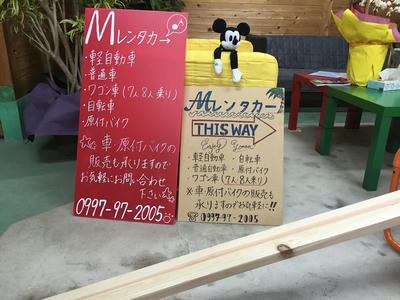 Mレンタカー→
・軽自動車
・普通車
・ワゴン車(7人8人乗り)
・自転車
・原付バイク
☆車・原付バイクの
販売も承りますので
お気軽にお問い合わせ
下さい☆
0997-97-2005
Mレンタカー
THIS WAY
Enjoy
・軽自動車 ・自転車
・普通自動車 ・原付バイク
・ワゴン車(7人・8人乗り)
※車・原付バイクの販売も
承りますのでお気軽に!!
☎0997-97-2005